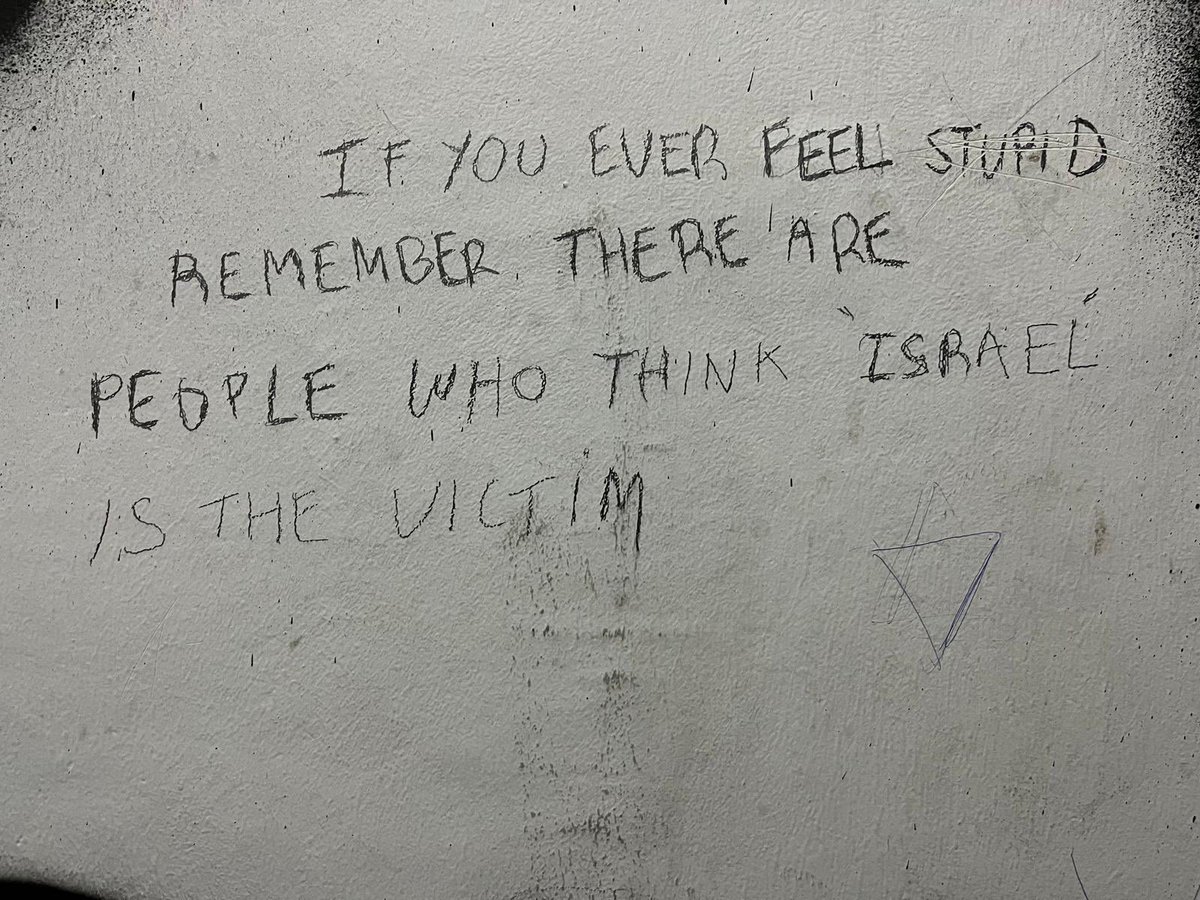 IF YOU EVER FEEL STUPID
REMEMBER. THERE ARE
PEOPLE WHO THINK "ISRAEL"
IS THE VICTIM